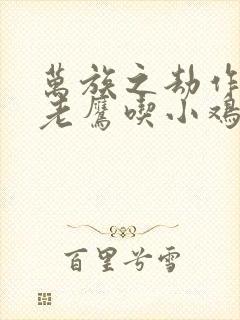 萬族之劫作
老鷹喫小鸡
百里兮雪